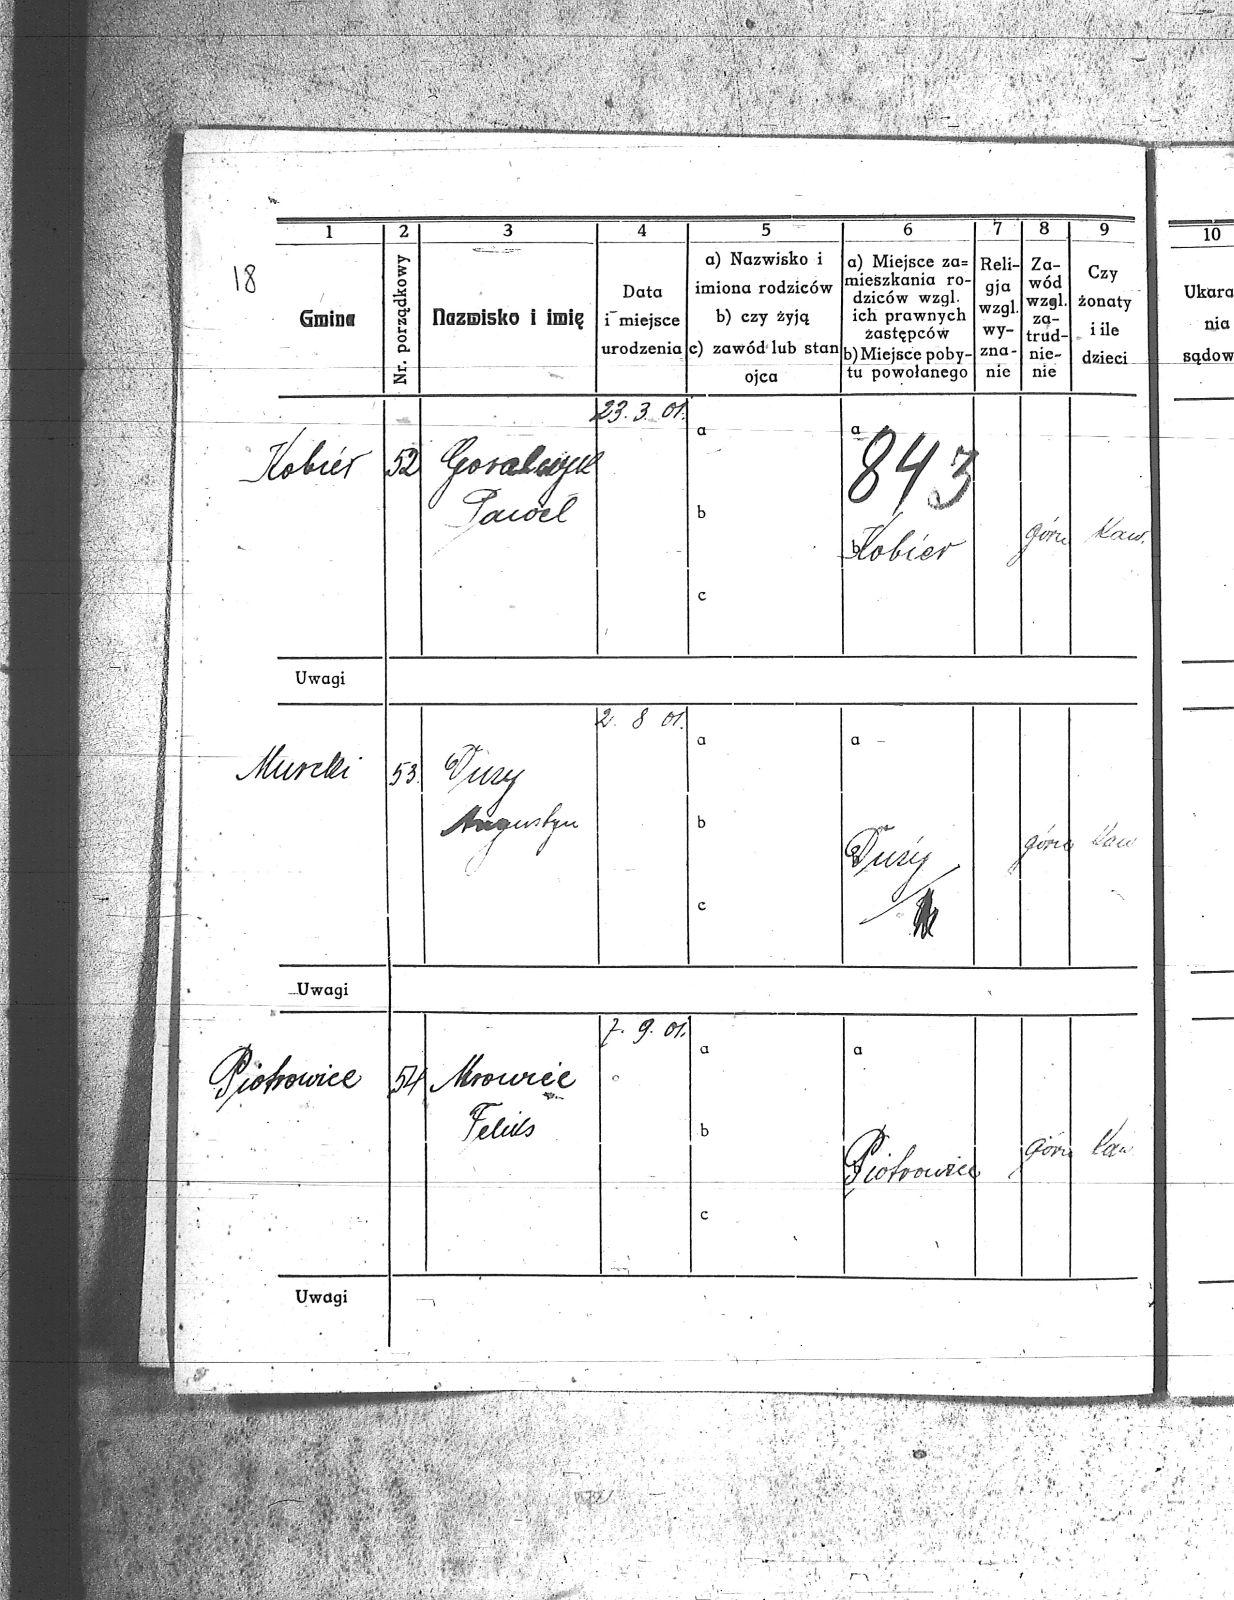 18
1 2 3 4 5 6 7 8 9 10
Gmina
Nr. porządkowy
Nazwisko i imię
Data
i miejsce
urodzenia
a) Nazwisko i
imiona rodziców
b) czy żyją
c) zawód lub stan
ojca
a) Miejsce za=
mieszkania ro-
dziców wzgl.
ich prawnych
zastępców
b) Miejsce poby-
tu powołanego
Reli-
gja
wzgl.
wy-
zna-
nie
Za-
wód
wzgl.
za-
trud-
nie-
nie
Czy
żonaty
i ile
dzieci
Ukara
nia
sądow
23. 3. 01.
a a
Kobiér 52 Goralczyk 843
Pawel
b b Kobiér górn Kaw.
c
Uwagi
2. 8 01.
a a
Murcki 53. Duży
Augustyn
b b Duży górn Kaw
c
Uwagi
7. 9. 01.
a a
Piotrowice 54 Mrowiec
Feliks
b b Piotrowice górn Kaw
c
Uwagi